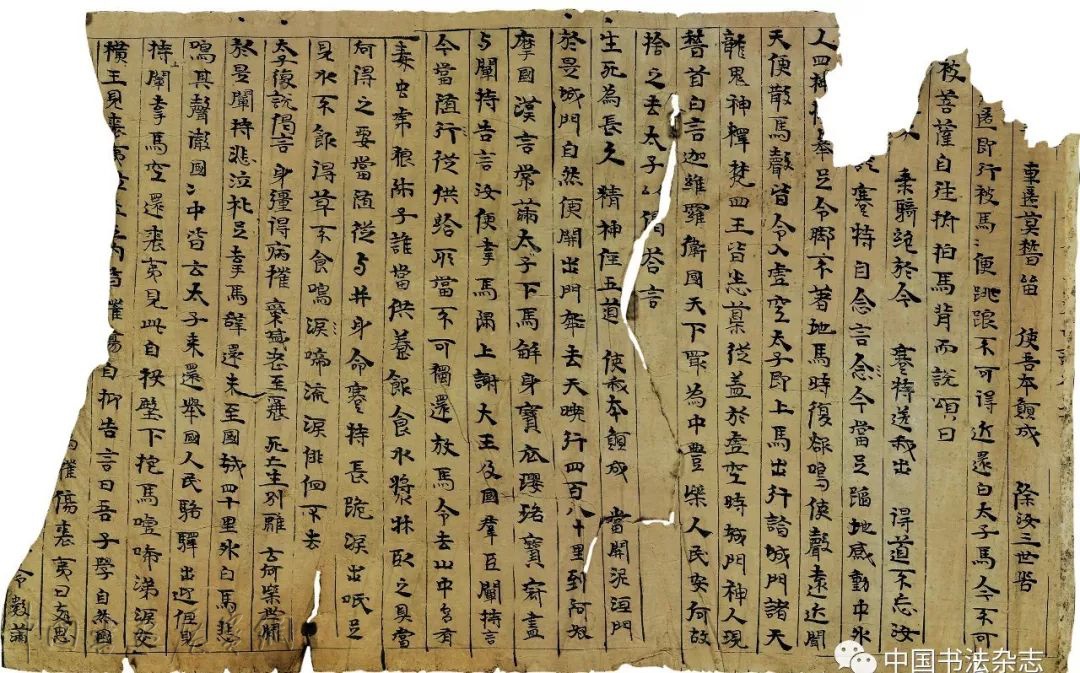 車匿莫留 使吾本願成 除汝三世苦
匿即行被馬〻便跳踉不可得近還白太子馬今不可
被菩薩自往拊拍馬背而說頌曰
乘騎絕於今 騫特送我出 得道不忘汝
騫特自念言念今當足蹋地感動中外
人四神接舉足令脚不著地馬時復欲鳴使聲遠近聞
天便散馬聲皆令入虛空太子即上馬出行詣城門諸天
龍鬼神釋梵四王皆悉導從蓋於虛空時城門神人現
稽首白言迦維羅衛國天下最為中豐樂人民安何故
捨之去太子以偈答言
生死為長久 精神經五道 使我本願成 當開泥洹門
於是城門自然便開出門飛去天曉行四百八十里到阿奴
摩國 漢言常滿太子下馬解身寶衣瓔珞寶冠盡
与闡特告言汝便牽馬歸上謝大王及國羣臣闡特言
今當隨行從供給所當不可獨還放馬令去山中多有
毒虫虎狼師子誰當供養飲食水漿牀臥之具當
何得之要當隨從与并身命騫特長跪淚出呧足
見水不飲得草不食鳴淚啼流淚俳佪不去
太子復說偈言 身彊得病摧 氣盛老至衰 死亡生別離 云何樂世間
於是闡特悲泣礼足牽馬辭還未至國城四十里外白馬悲
鳴其聲徹國〻中皆云太子来還舉國人民駱驛出迎但見
特闡牽馬空還裘夷見此自投壁下抱馬噎啼涕淚交
橫王見裘夷內皆摧傷自抑告言曰吾子學自然國
內摧傷裘夷日夜思
令數滿
中国书法杂志